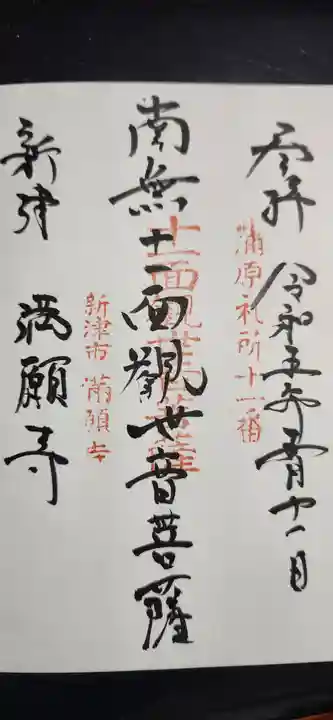 奉拝 令和五年 十一日
蒲原札所十一番
南無十一面觀世音菩薩
十一面観世音菩薩
新津市 満願寺
新津 満願寺